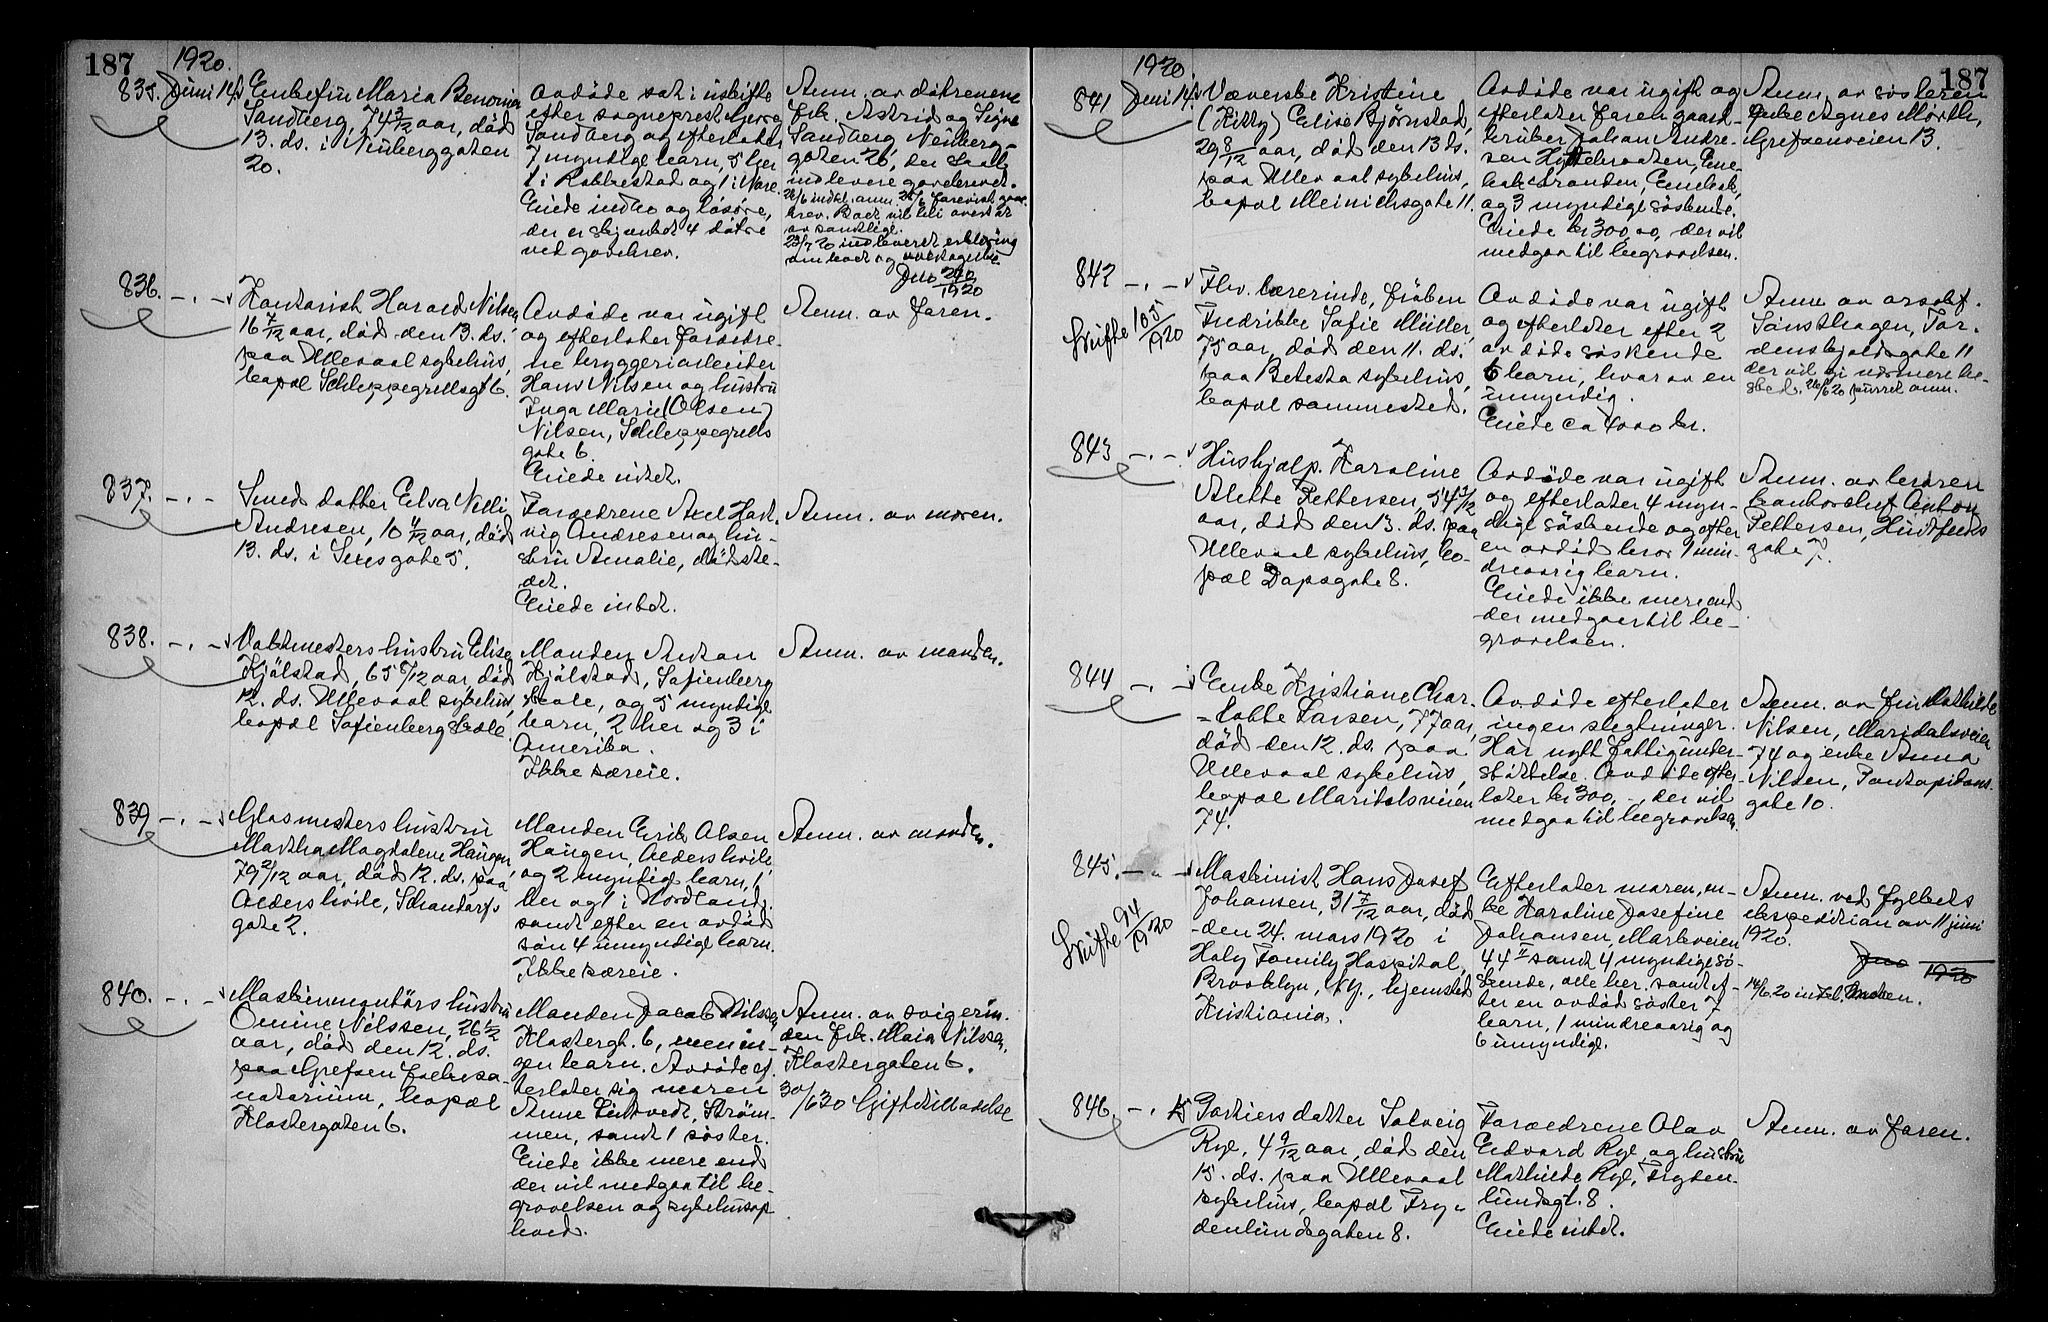 187
1920.
835. Juni 14.
Enkefru Maria Benonia
Sandberg, 74 3/12 aar, död
13. ds. i Neuberggaten
20.
Avdöde sat i uskifte
efter sogneprest
Sandberg og efterlater
7 myndige barn, 5 her
1 i Rakkestad og 1 i
Eiede indbo og lösöre,
der er skjænket 4 dötre
ved gavebrev.
Anm. av dötrene
frk. Astrid og Signe
Sandberg, Neuberg-
gaten 20, der skal
indlevere gavebrevet.
av samtlige.
23/7 20 indleveret erklæring
om boets overtagelse
1920
836. -.-
Kontorist Harald Nilsen
16 7/12 aar, död den 13. ds.
paa Ullevaal sykehus,
bopæl Schleppegrellsgt 6.
Avdöde var ugift
og efterlater forældre-
ne bryggeriarbeider
Hans Nilsen og hustru
Inga Marie (Olsen)
Nilsen, Schleppegrells
gate 6.
Eiede intet.
Anm. av faren.
837. -.-
Smed datter Elva Nelli
Andresen, 10 4/12 aar, död
13. ds. i Seresgate 5.
Forældrene Axel Hart-
vig Andresen og hu-
stru Amalie, dödste-
det.
Eiede intet.
Anm. av moren.
838. -.-
Vaktmesters hustru Elise
Kjölstad, 65 8/12 aar, död
12. ds. Ullevaal sykehus,
bopæl Sofienberg skole
Manden Anton
Kjölstad, Sofienberg
skole, og 5 myndige
barn, 2 her og 3 i
Amerika.
Ikke særeie.
Anm. av manden.
839 -.-
Glasmesters hustru
Martha Magdalene Haugen,
79 2/12 aar, död 12. ds. paa
Aldershvile, Schandorfs
gate 2.
Manden Erik Olsen
Haugen, Aldershvile,
og 2 myndige barn, 1
her og 1 i Nordland,
samt efter en avdöd
sön 4 umyndige barn.
Ikke særeie.
Anm. av manden.
840. -.-
Maskinmontörs hustru
Omine Nilssen, 26 1/2
aar, död den 12. ds.
paa Grefsen folkesa-
natorium, bopæl
Klostergaten 6.
Manden Jacob Nilssen,
Klostergt. 6, men in-
gen barn. Avdöde ef-
terlater sig moren
Anne Lintvedt, Ström-
men, samt 1 söster.
Eiede ikke mere end
der vil medgaa til be-
gravelsen og sykehusop
hold.
Anm. av svigerin-
den frk. Maia Nilssen,
Klostergaten 6.
30/6 20 Gifttilladelse
187
1920.
841 Juni 14.
Væverske Kristine
(Kitty) Elise Björnstad,
29 8/12 aar, död den 13 ds.
paa Ullevaal sykehus,
bopæl Meinichsgate 11.
Avdöde var ugift og
efterlater faren gaard-
bruker Johan Andre-
sen
og 3 myndige söskende.
Eiede kr 300 00, der vil
medgaa til begravelsen.
Anm. av sösteren
Agnes
Grefsenveien 13.
842 -.-
Skifte 105/1920
Fhv. lærerinde, fröken
Fredrikke Sofie Müller,
75 aar, död den 11. ds.
paa Betesta sykehus,
bopæl sammested.
Avdöde var ugift
og efterlater efter 2
avdöde söskende
6 barn, hvor av en
umyndig.
Eiede ca 4000 kr.
Anm. av
Tönsthagen, Tor-
denskjoldsgate 11
der vil gi nærmere be-
sked. 26/6 20 purret anm.
843 -.-
Hushjælp. Karoline
Alette Pettersen, 54 1/12
aar, död den 13. ds. paa
Ullevaal sykehus, bo-
pæl Dopsgate 8.
Avdöde var ugift
og efterlater 4 myn-
dige söskende og efter
en avdöd bror 1 min-
dreaarig barn.
Eiede ikke mere end
der medgaar til be-
gravelsen.
Anm. av broren
kontorchef Anton
Pettersen, Huitfeldts
gate 7.
844 -.-
Enke Kristiane Char-
lotte Larsen, 77 aar,
död den 12. ds. paa
Ullevaal sykehus,
bopæl Maridalsveien
74.
Avdöde efterlater
ingen slegtninger.
Har nytt fattigunder-
stöttelse. Avdöde efter-
later kr 300,-, der vil
medgaa til begravelsen.
Anm. av fru Mathilde
Nilsen, Maridalsveien
74 og enke Anna
Nilsen,
gate 10.
845. -.-
Skifte 94/1920
Maskinist Hans Josef
Johansen, 31 7/12 aar, död
den 24. mars 1920 i
Holy Family Hospital,
Brooklyn, N.Y., hjemsted
Kristiania.
Efterlater moren, en-
ke Karoline Josefine
Johansen, Markveien
44 II samt 4 myndige sö-
skende, alle her. samt ef-
ter en avdöd söster 7
barn, 1 mindreaarig og
6 umyndige.
Anm. ved fylkets
ekspedition av 11 juni
1920.
14/6 20 indk.
846. -.- 15
Portiers datter Solveig
Rye, 4 9/12 aar, död den
15. ds. paa Ullevaal
sykehus, bopæl Fry-
denlundsgaten 8.
Forældrene Olav
Edvard Rye og hustru
Mathilde Rye, Fryden-
lundsgt. 8.
Eiede intet.
Anm. av faren.